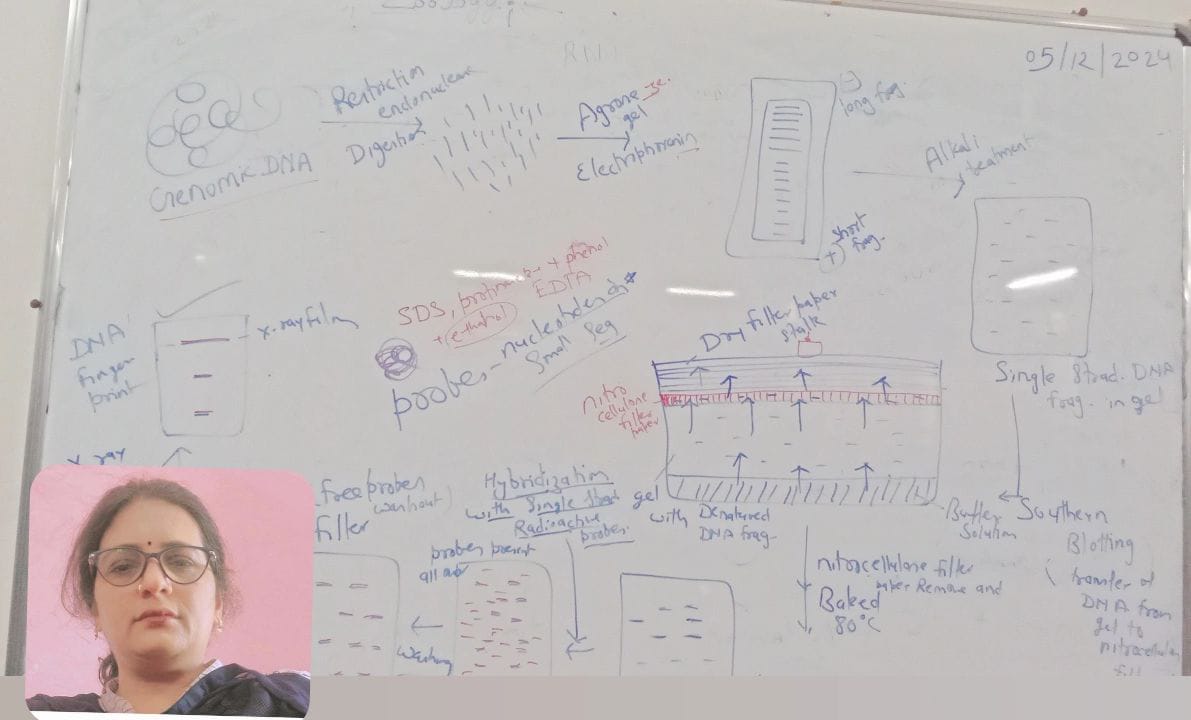 05/12/2024
Genomic DNA
Restriction
endonuclease
Digestion
Agrose
se.
gel
Electrophoresis
(-)
long frag.
(+) short
frag.
Alkali
treatment
Single Strad. DNA
frag. in gel
Southern
Blotting
transfer of
DNA from
gel to
nitrocellulose
SDS, + phenol
+ ethanol EDTA
probes - nucleotides of *
Small Seq
Dry filter paper
stalk
nitro
cellulose
filter
paper
gel
with Denatured
DNA frag-
Buffer
Solution
nitrocellulose filter
paper Remove and
Baked
80°C
Hybridization
with Single Strad
Radioactive
probes.
probes present
all over
washing
free probes
washout)
filter
x-ray
x.rayfilm
DNA
finger
print